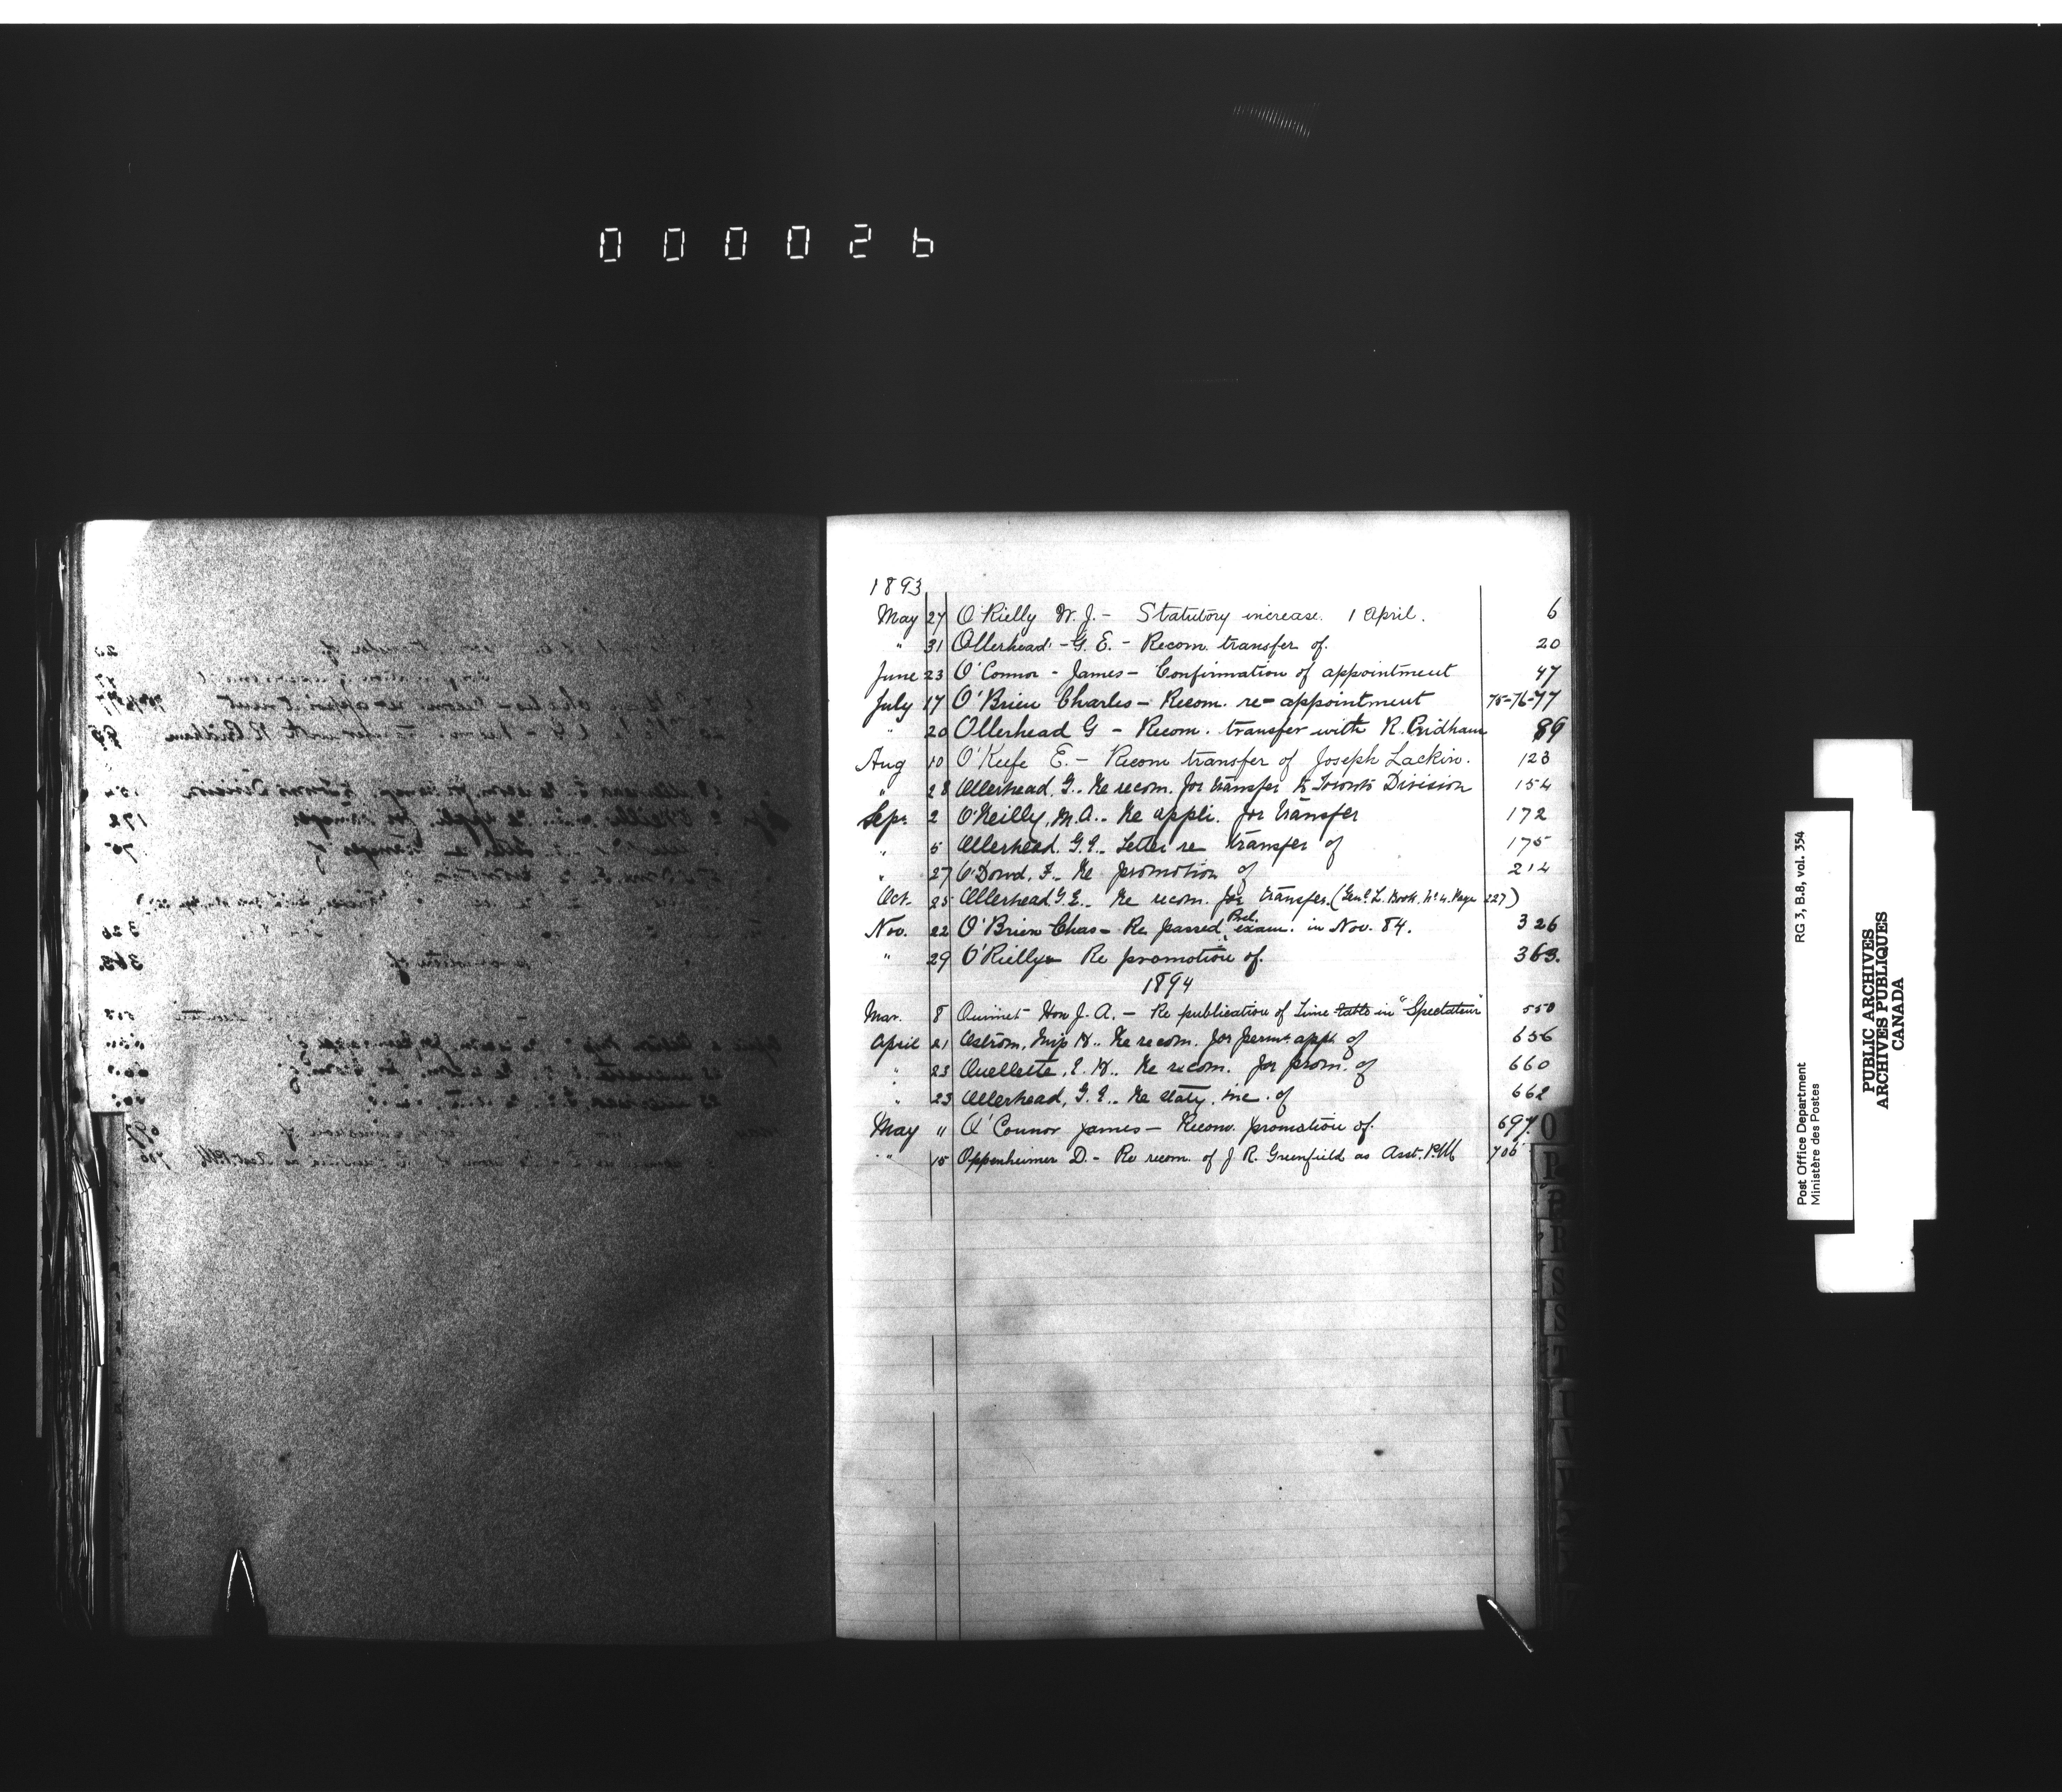 000026
1893
May 27 O'Rielly W. J. - Statutory increase. 1 April. 6
" 31 Ollerhead - G. E. - Recom. transfer of. 20
June 23 O'Connor - James - Confirmation of appointment 47
July 17 O'Brien Charles - Recom. re-appointment 75-76-77
" 20 Ollerhead G - Recom. transfer with R. Pridham 89
Aug 10 O'Keefe E. - Recom transfer of Joseph Lackin. 123
" 28 Ollerhead, G. - Re recom. for transfer to Toronto Division 154
Sep. 2 O'Reilly, M.A. - Re appli. for transfer 172
" 5 Ollerhead. G.E. Letter re transfer of 175
" 27 O'Dowd, F. - Re promotion of 214
Oct. 25 Ollerhead G.E. - Re recom. for transfer. (Genl. L. Book, No. 4. Page 227)
Nov. 22 O'Brien Chas - Re passed Prel. exam. in Nov. 84. 326
" 29 O'Rielly Re promotion of. 363.
1894
Mar. 8 Ouimet Hon J. A. - Re publication of Time table in "Spectateur" 550
April 21 Ostrom, Miss H. - Re recom. for permt. appt. of 656
" 23 Ouellette, E. H. - Re recom. for prom. of 660
" 23 Ollerhead, G. E. - Re staty. inc. of 662
May " O'Connor James - Recom. promotion of. 697
" 15 Oppenheimer D. - Re recom. of J R. Greenfield as Asst. P.M 706
O
P
R
S
Post Office Department
Ministère des Postes
RG 3, B.8, vol. 354
PUBLIC ARCHIVES
ARCHIVES PUBLIQUES
CANADA